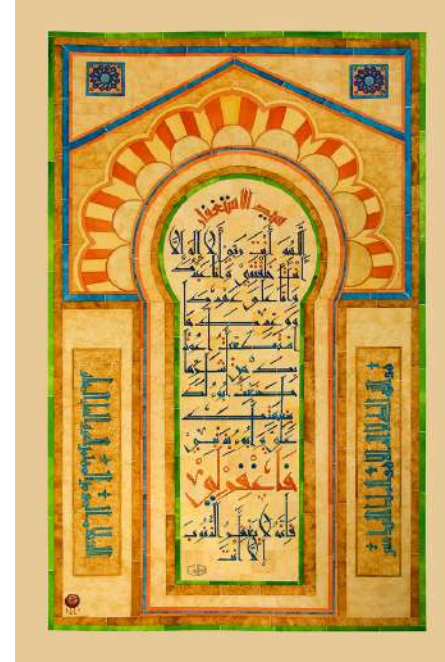 سيد الاستغفار
اللهم أنت ربي لا إله إلا
أنت خلقتني وأنا عبدك
وأنا على عهدك
ووعدك ما
استطعت أعوذ
بك من شر ما
صنعت أبوء لك
بنعمتك
علي وأبوء بذنبي
فاغفر لي
فإنه لا يغفر الذنوب
إلا أنت